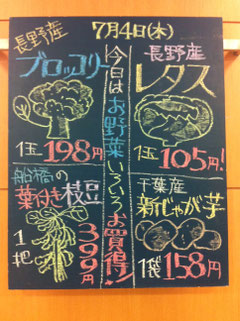 7月4日(木)
今日はお野菜いろいろお買得!
長野産
ブロッコリー
1玉198円
長野産
レタス
1玉105円!
船橋の
葉付き枝豆
1把
399円!
千葉産
新じゃが芋
1袋158円